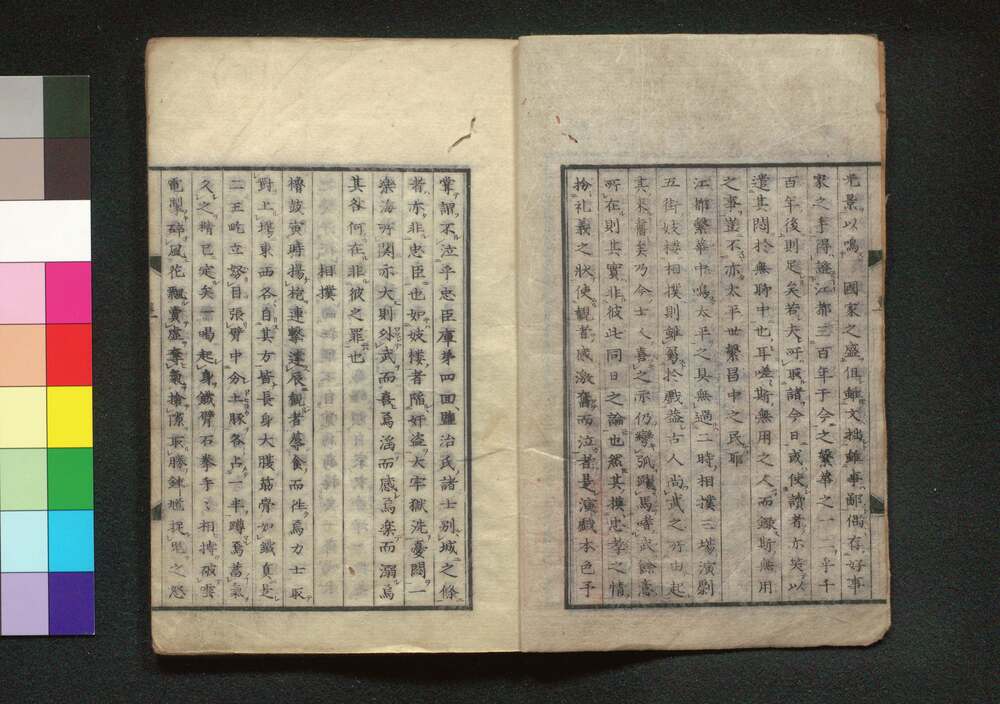 光景以鳴 國家之盛但雖文拙雖事鄙偶存好事
家之手得證江都三百年于今之繁華之一二乎千
百年後則足矣若夫所取諸今日或使讀者亦笑以
遣其悶於無聊中也耳嗟斯無用之人而錄斯無用
之事豈不亦太平世繁昌中之民耶
江都繁華中鳴太平之具無過二時相撲三場演劇
五街妓樓相撲則雖
人尚武之所由起
其
乃今士人喜之示仍彎弧躍馬嗜武餘意
所在則其實非彼此同日之論也然其摸忠孝之情
扮礼義之狀使觀者感激奮而泣者是演戲本色予
掌謂不泣乎忠臣庫第四回鹽冶氏諸士別城之條
者亦非忠臣也如妓樓者陷奸盜大牢獄洗憂悶一
樂海所関亦大則外武而喜焉滛而感焉楽而溺焉
其咎何在非彼之罪也
相撲
櫓鼓寅時揚枹連擊達辰觀者蓐食而徃焉力士取
對上塲東西各自其方皆長身大腹筋骨如鐵真是
二王屹立努目張臂中分土豚各占一半蹲焉蓄氣
久之精已定矣一喝起身鐵臂石拳手々相搏破雲
電掣碎風花飄賣虛奪氣搶隙取勝鍾馗捉鬼之怒